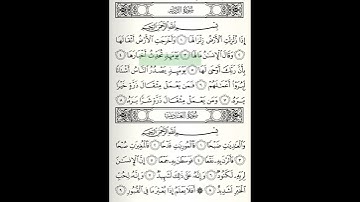 سُورَةُ الزَّلْزَلَةِ
بِسْمِ اللَّهِ الرَّحْمَٰنِ الرَّحِيمِ
إِذَا زُلْزِلَتِ الْأَرْضُ زِلْزَالَهَا ١ وَأَخْرَجَتِ الْأَرْضُ أَثْقَالَهَا
٢ وَقَالَ الْإِنسَٰنُ مَا لَهَا ٣ يَوْمَئِذٍ تُحَدِّثُ أَخْبَارَهَا ٤
بِأَنَّ رَبَّكَ أَوْحَىٰ لَهَا ٥ يَوْمَئِذٍ يَصْدُرُ النَّاسُ أَشْتَاتًا
لِّيُرَوْا أَعْمَٰلَهُمْ ٦ فَمَن يَعْمَلْ مِثْقَالَ ذَرَّةٍ خَيْرًا
يَرَهُ ٧ وَمَن يَعْمَلْ مِثْقَالَ ذَرَّةٍ شَرًّا يَرَهُ ٨
سُورَةُ الْعَادِيَاتِ
بِسْمِ اللَّهِ الرَّحْمَٰنِ الرَّحِيمِ
وَالْعَٰدِيَٰتِ ضَبْحًا ١ فَالْمُورِيَٰتِ قَدْحًا ٢ فَالْمُغِيرَٰتِ صُبْحًا
٣ فَأَثَرْنَ بِهِ نَقْعًا ٤ فَوَسَطْنَ بِهِ جَمْعًا ٥ إِنَّ الْإِنسَٰنَ
لِرَبِّهِ لَكَنُودٌ ٦ وَإِنَّهُ عَلَىٰ ذَٰلِكَ لَشَهِيدٌ ٧ وَإِنَّهُ لِحُبِّ
الْخَيْرِ لَشَدِيدٌ ٨ ۞ أَفَلَا يَعْلَمُ إِذَا بُعْثِرَ مَا فِي الْقُبُورِ ٩